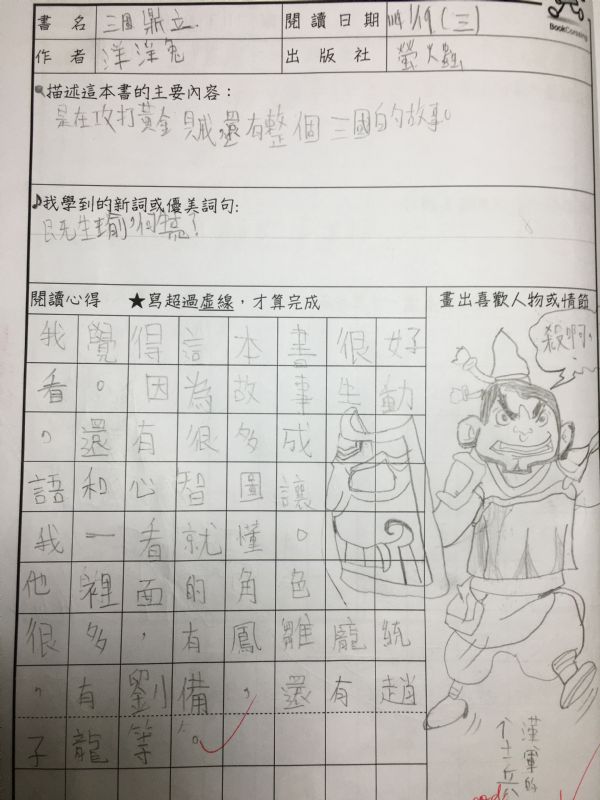 書名 三國鼎立. 閱讀日期 1/19(三)
作者 洋洋兔 出版社 螢火蟲
BookCrossing
描述這本書的主要內容:
是在攻打黃金賊,還有整個三國的故事。
♪我學到的新詞或優美詞句:
既生瑜,何生亮!
閱讀心得 ★寫超過虛線,才算完成 畫出喜歡人物或情節
殺啊。
我覺得這本書很好
看。因為故事生動
,還有很多成
語和心智圖讓
我一看就懂。
他裡面的角色
很多,有鳳雛龐統
,有劉備,還有趙
子龍等。
漢軍的
小士兵